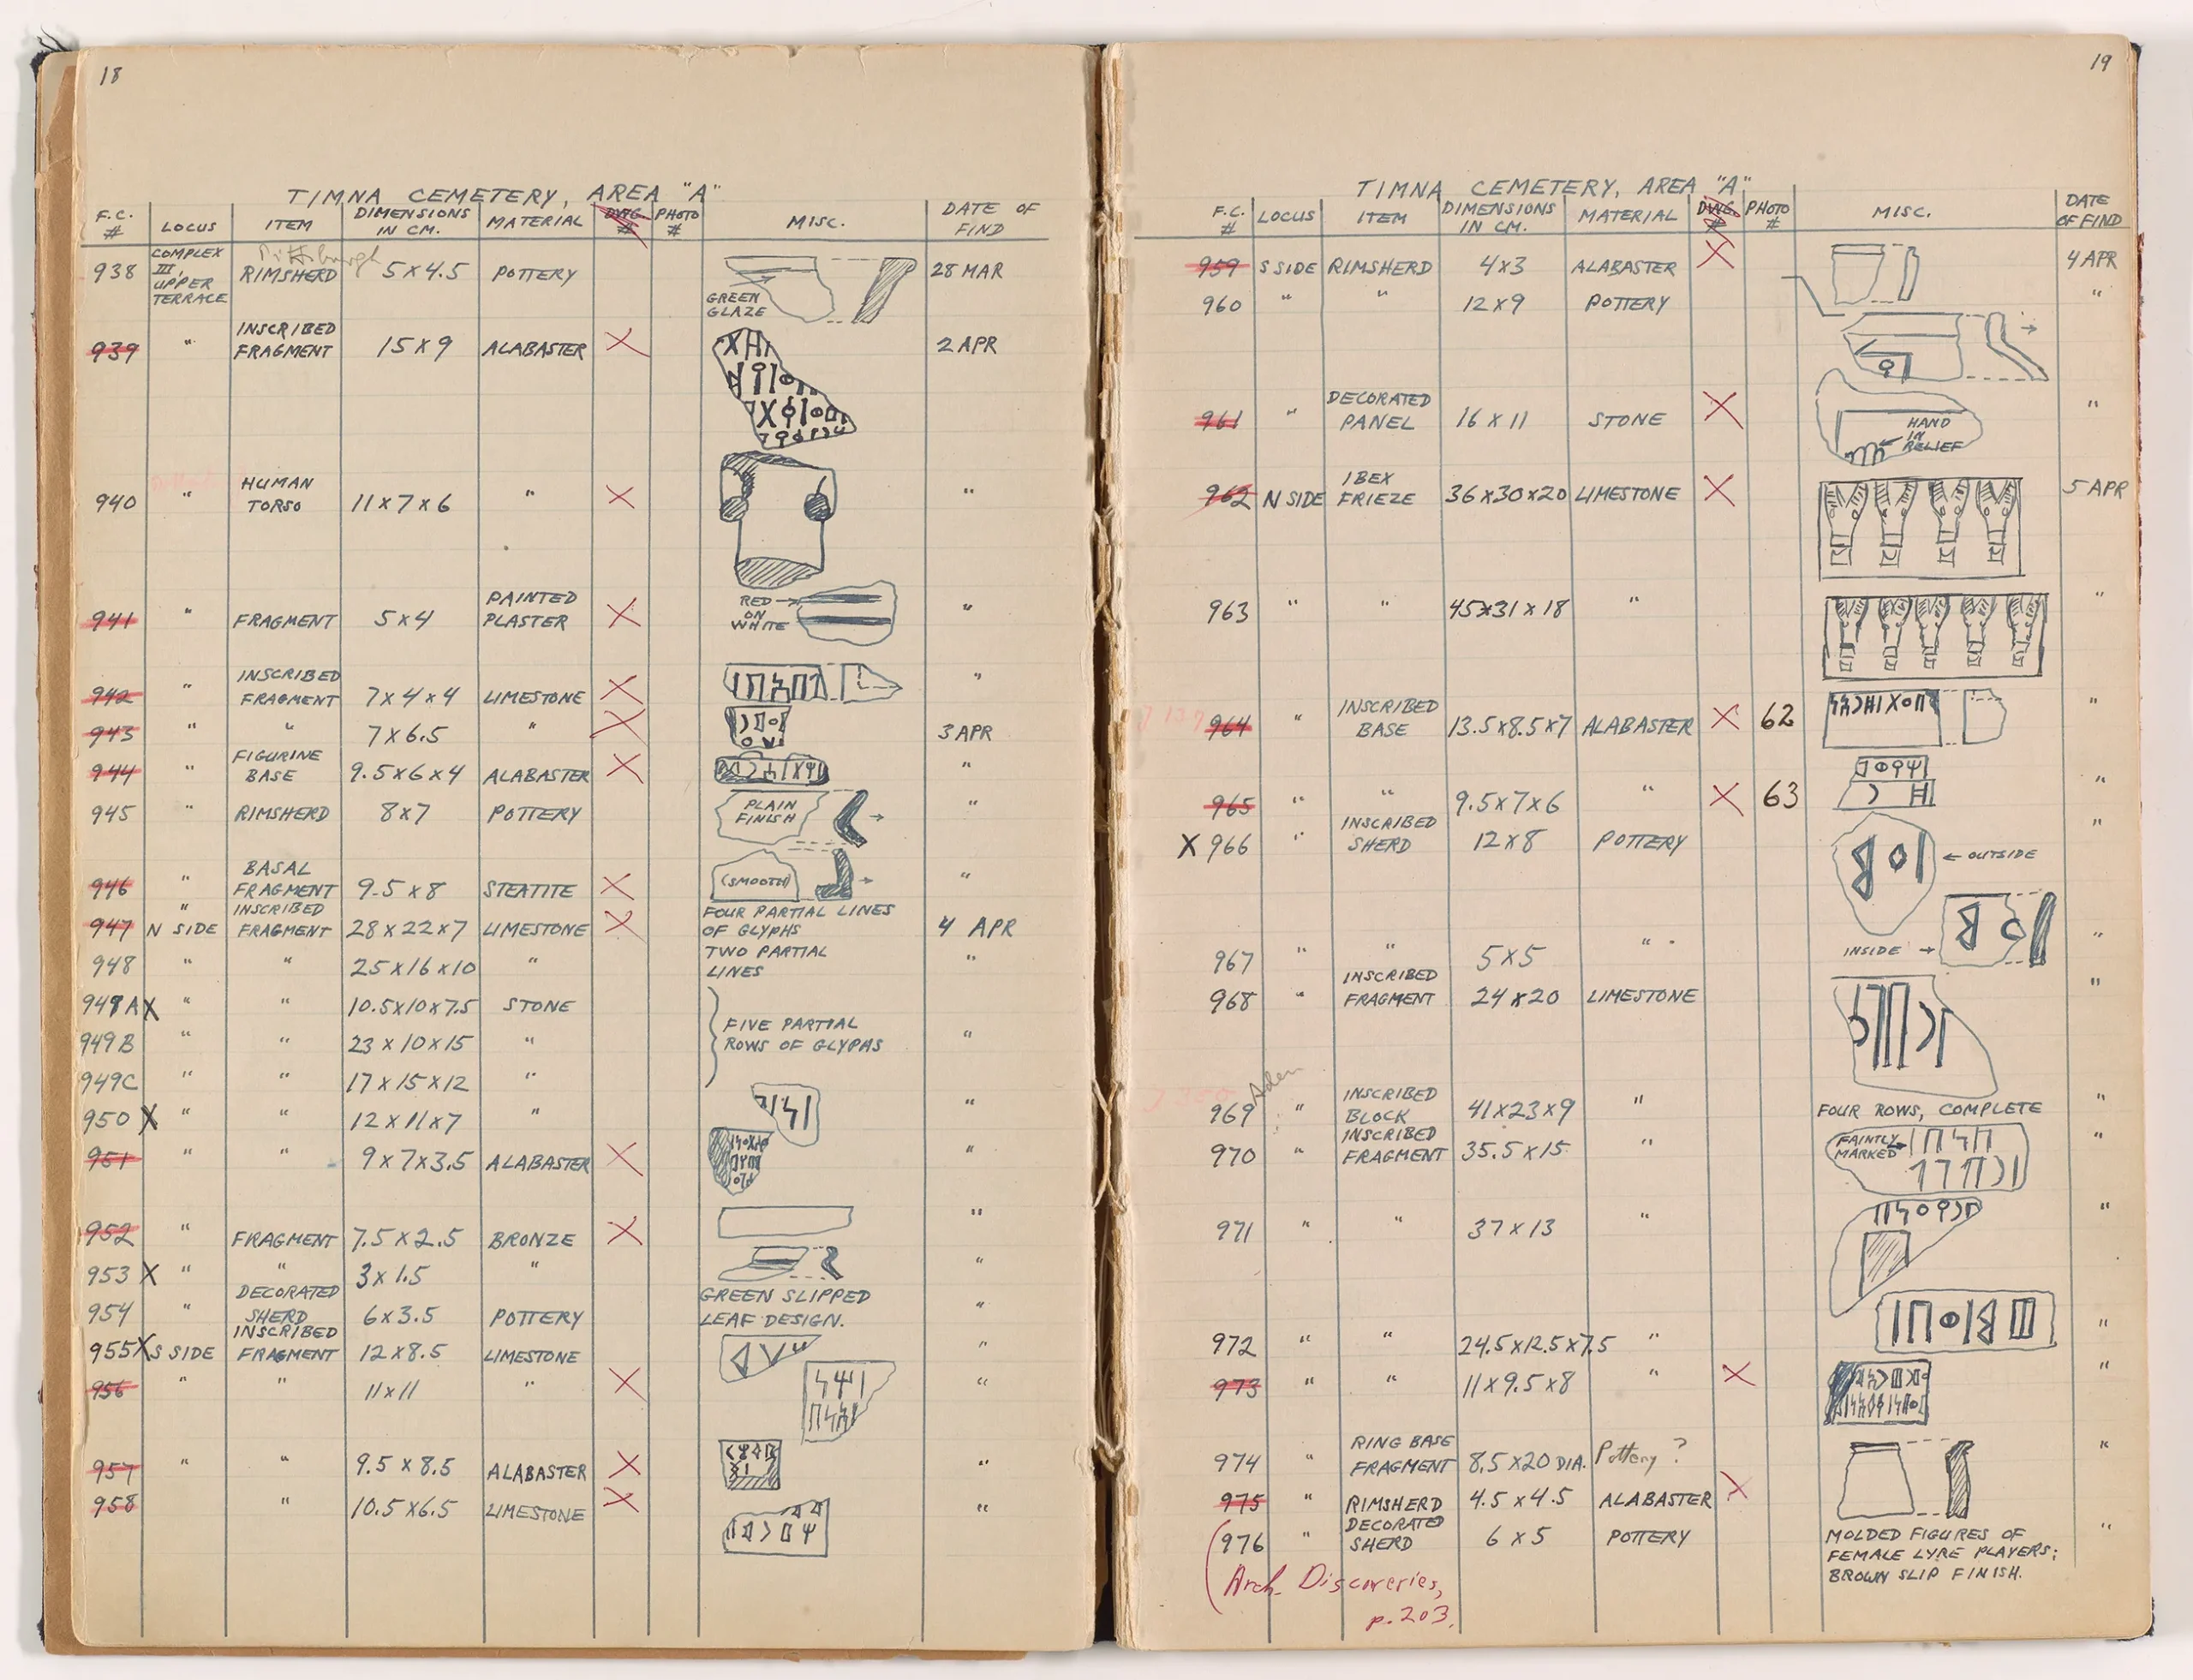 18
TIMNA CEMETERY, AREA "A"
F.C. # LOCUS ITEM DIMENSIONS IN CM. MATERIAL DWG. # PHOTO # MISC. DATE OF FIND
Pittsburgh
938 COMPLEX III, UPPER TERRACE RIMSHERD 5 x 4.5 POTTERY GREEN GLAZE 28 MAR
939 " INSCRIBED FRAGMENT 15 x 9 ALABASTER X 2 APR
940 " HUMAN TORSO 11 x 7 x 6 " X "
941 " FRAGMENT 5 x 4 PAINTED PLASTER X RED ON WHITE "
942 " INSCRIBED FRAGMENT 7 x 4 x 4 LIMESTONE X "
943 " " 7 x 6.5 " X 3 APR
944 " FIGURINE BASE 9.5 x 6 x 4 ALABASTER X "
945 " RIMSHERD 8 x 7 POTTERY PLAIN FINISH "
946 " BASAL FRAGMENT 9.5 x 8 STEATITE X (SMOOTH) "
947 " N SIDE INSCRIBED FRAGMENT 28 x 22 x 7 LIMESTONE X FOUR PARTIAL LINES OF GLYPHS 4 APR
948 " " 25 x 16 x 10 " TWO PARTIAL LINES "
949A X " " 10.5 x 10 x 7.5 STONE
949B " " 23 x 10 x 15 " FIVE PARTIAL ROWS OF GLYPHS "
949C " " 17 x 15 x 12 "
950 X " " 12 x 11 x 7 " "
951 " " 9 x 7 x 3.5 ALABASTER X "
952 " FRAGMENT 7.5 x 2.5 BRONZE X "
953 X " " 3 x 1.5 " "
954 " DECORATED SHERD 6 x 3.5 POTTERY GREEN SLIPPED LEAF DESIGN. "
955 X S SIDE INSCRIBED FRAGMENT 12 x 8.5 LIMESTONE "
956 " " 11 x 11 " X "
957 " " 9.5 x 8.5 ALABASTER X "
958 " 10.5 x 6.5 LIMESTONE X "
19
TIMNA CEMETERY, AREA "A"
F.C. # LOCUS ITEM DIMENSIONS IN CM. MATERIAL DWG. # PHOTO # MISC. DATE OF FIND
959 S SIDE RIMSHERD 4 x 3 ALABASTER X 4 APR
960 " " 12 x 9 POTTERY "
961 " DECORATED PANEL 16 x 11 STONE X HAND IN RELIEF "
962 N SIDE IBEX FRIEZE 36 x 30 x 20 LIMESTONE X 5 APR
963 " " 45 x 31 x 18 " "
964 " INSCRIBED BASE 13.5 x 8.5 x 7 ALABASTER X 62 "
965 " " 9.5 x 7 x 6 " X 63 "
X 966 " INSCRIBED SHERD 12 x 8 POTTERY ← OUTSIDE "
967 " " 5 x 5 " INSIDE → "
968 " INSCRIBED FRAGMENT 24 x 20 LIMESTONE "
Aden
969 " INSCRIBED BLOCK 41 x 23 x 9 " FOUR ROWS, COMPLETE "
970 " INSCRIBED FRAGMENT 35.5 x 15 " FAINTLY MARKED "
971 " " 37 x 13 " "
972 " " 24.5 x 12.5 x 7.5 " "
973 " " 11 x 9.5 x 8 " X "
974 " RING BASE FRAGMENT 8.5 x 20 DIA. Pottery ? "
975 " RIMSHERD 4.5 x 4.5 ALABASTER X
976 " DECORATED SHERD 6 x 5 POTTERY MOLDED FIGURES OF FEMALE LYRE PLAYERS; BROWN SLIP FINISH. "
Arch. Discoveries,
p. 203.